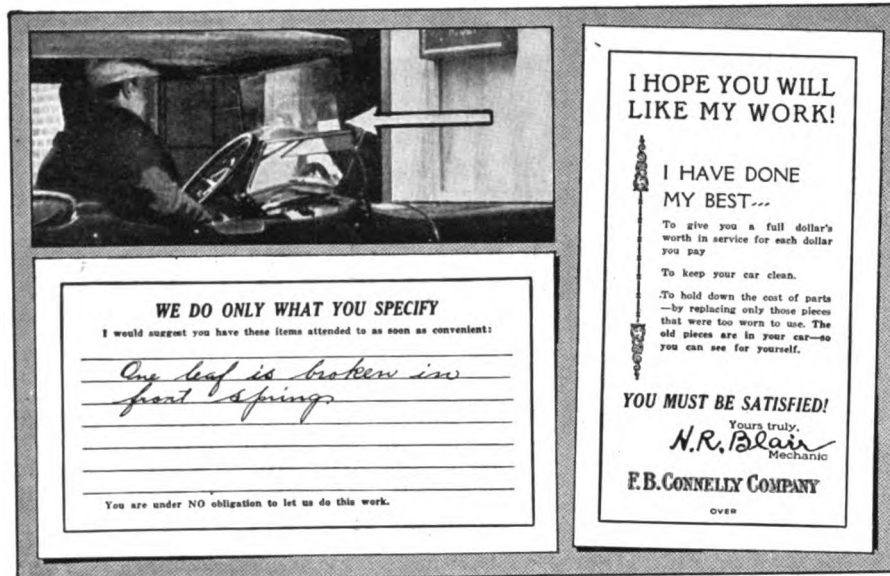 WE DO ONLY WHAT YOU SPECIFY
I would suggest you have these items attended to as soon as convenient:
One leaf is broken in
front springs
You are under NO obligation to let us do this work.
I HOPE YOU WILL
LIKE MY WORK!
I HAVE DONE
MY BEST---
To give you a full dollar's
worth in service for each dollar
you pay
To keep your car clean.
To hold down the cost of parts
—by replacing only those pieces
that were too worn to use. The
old pieces are in your car—so
you can see for yourself.
YOU MUST BE SATISFIED!
Yours truly,
N.R. Blair
Mechanic
F.B. CONNELLY COMPANY
OVER